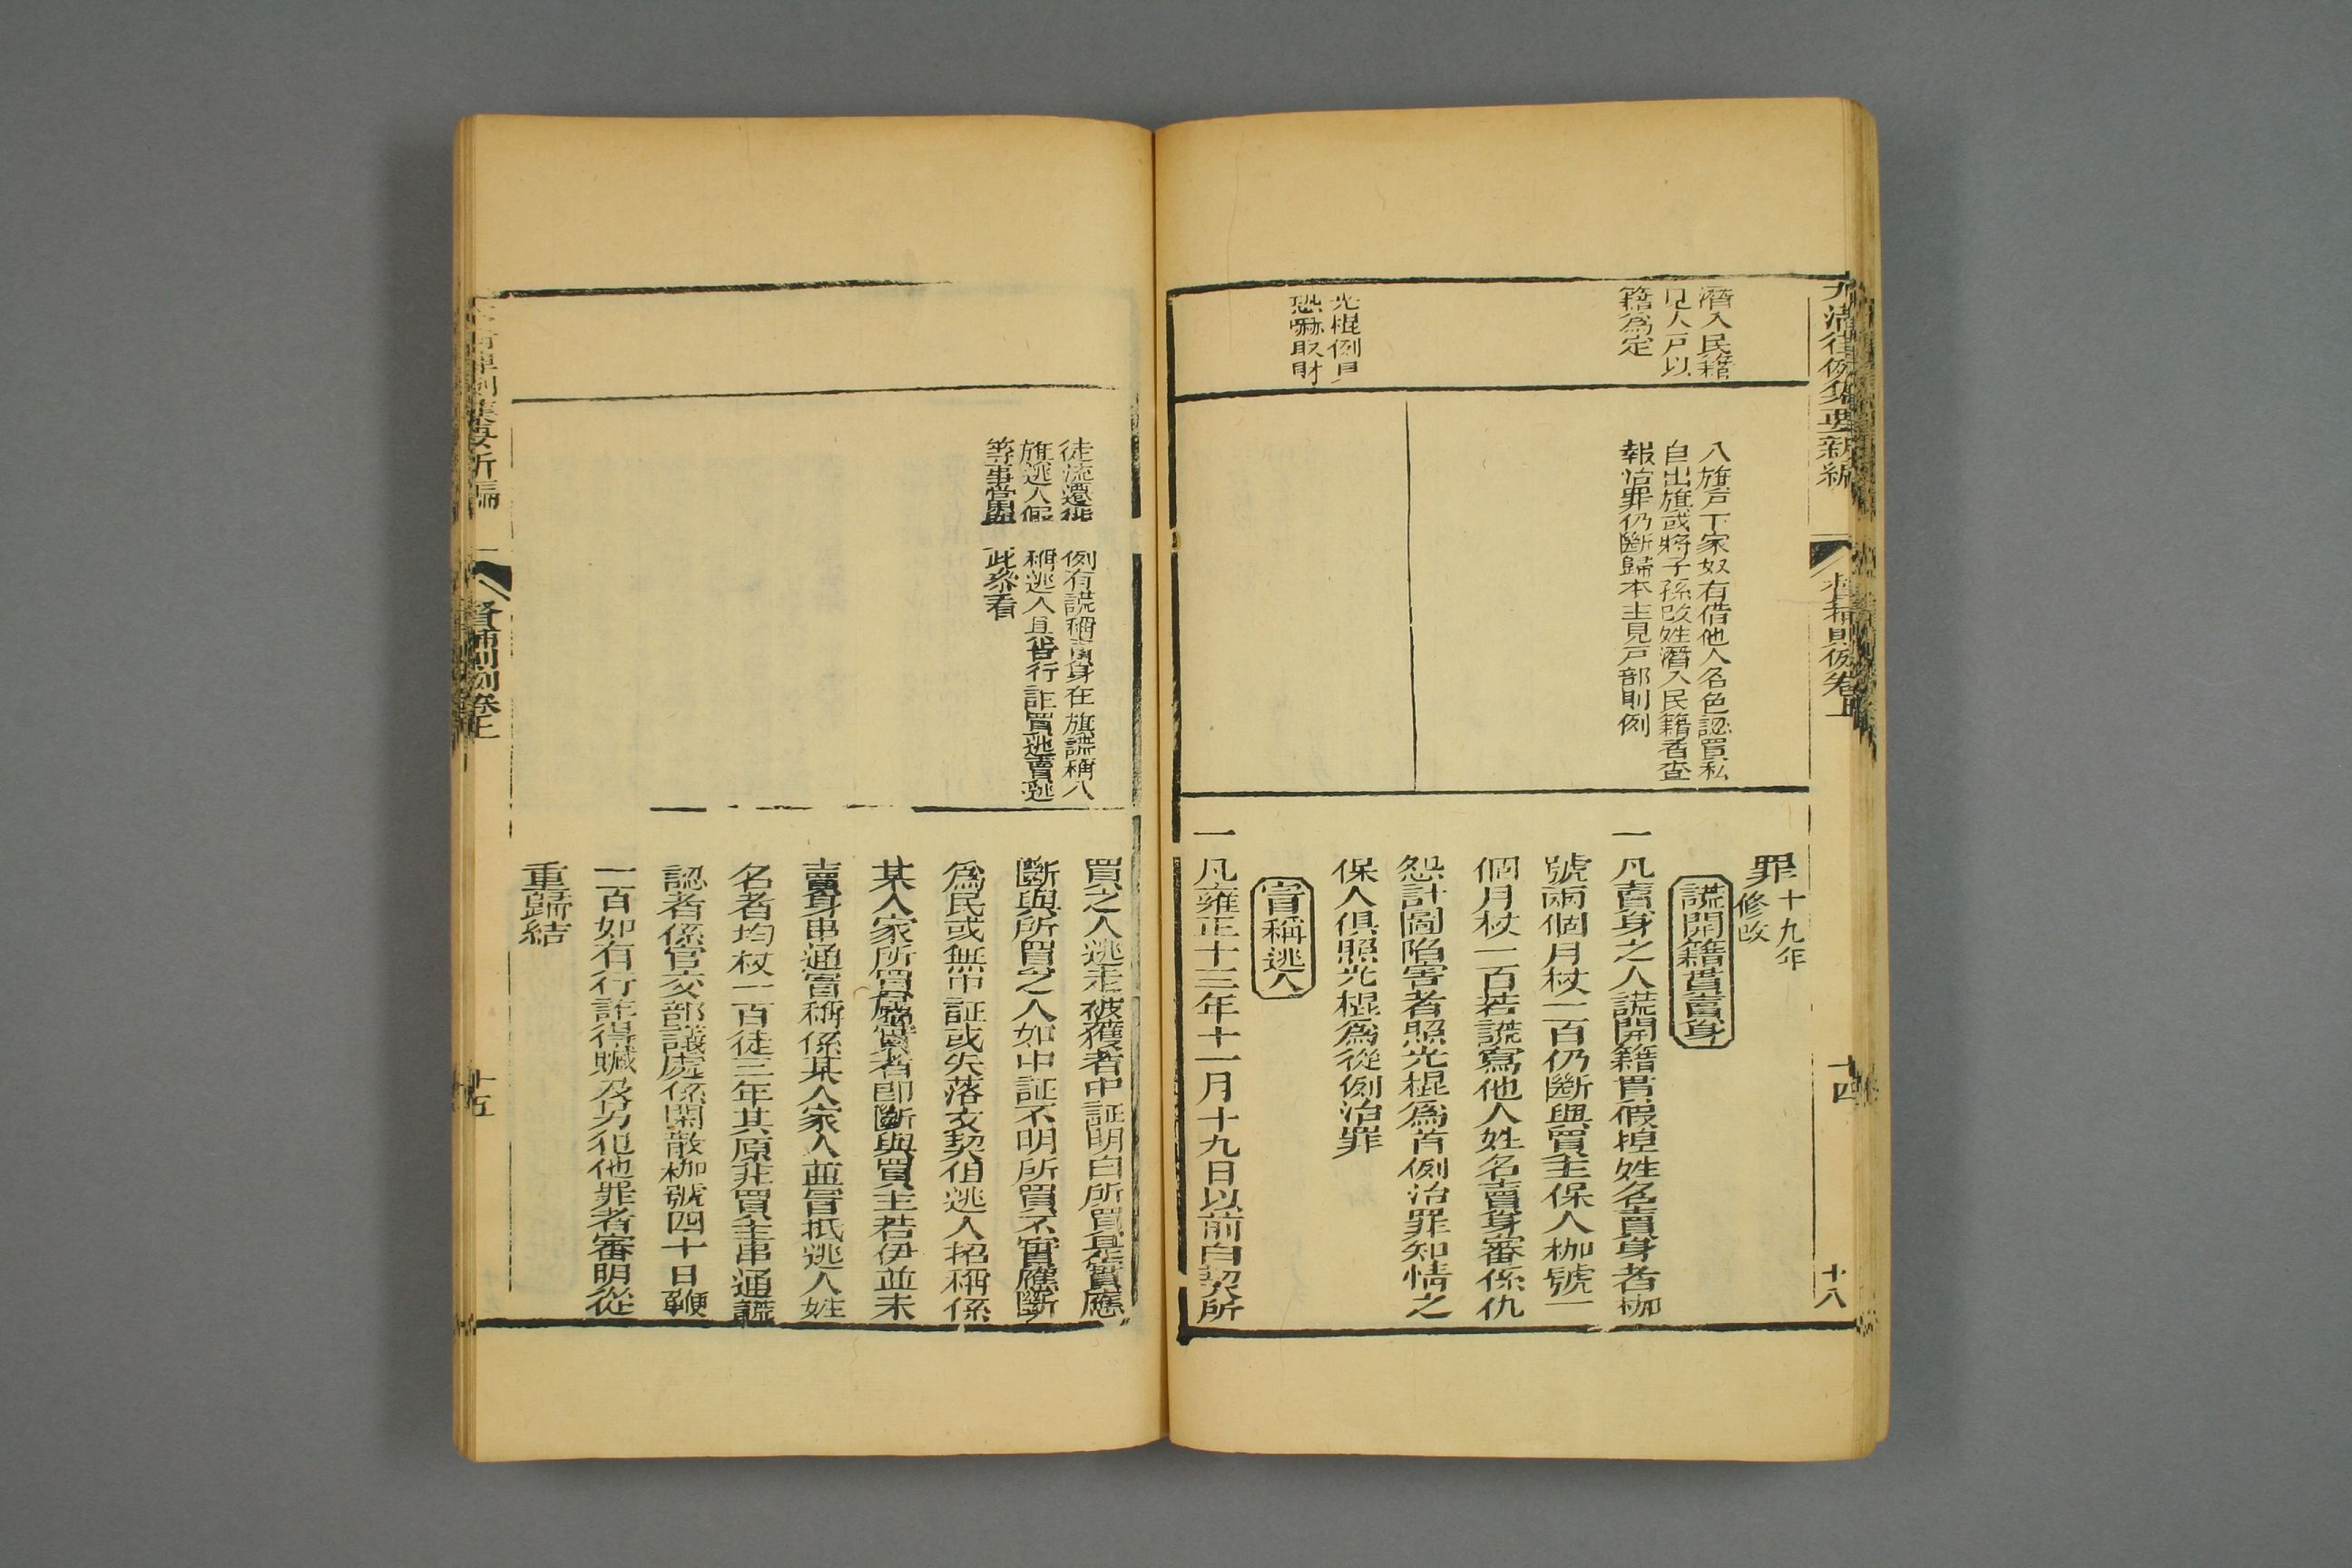 大清律例彙要新編
督捕則例卷上
十四
十八
潛入民籍
見人戶以
籍為定
光棍例見
恐嚇取財
八旗戶下家奴有借他人名色認買私
自出旗或將子孫改姓潛入民籍者查
報治罪仍斷歸本主見戶部則例
罪十九年
修改
謊開籍貫賣身
一凡賣身之人謊開籍貫假捏姓名賣身者枷
號兩個月杖一百仍斷與買主保人枷號一
個月杖一百若謊寫他人姓名賣身審係仇
怨計圖陷害者照光棍為首例治罪知情之
保人俱照光棍為從例治罪
冒稱逃人
一凡雍正十三年十一月十九日以前白契所
徒流遷徙
旗逃人假
等事當與
例有謊稱
身在旗謊稱八
稱逃人且
行詐買逃賣逃
此參看
買之人逃走被獲者中証明白所買是實應
斷與所買之人如中証不明所買不實應斷
為民或無中証或失落文契但逃人招稱係
某人家所買屬實者即斷與買主若伊並未
賣身串通冒稱係某人家人並冒抵逃人姓
名者均杖一百徒三年其原非買主串通謊
認者係官交部議處係閑散枷號四十日鞭
一百如有行詐得贓及另犯他罪者審明從
重歸結
督捕則例卷上
十五